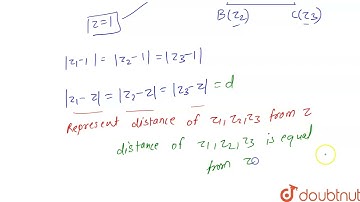 |z=1|
B(z₂) C(z₃)
|z₁-1| = |z₂-1| = |z₃-1|
|z₁-z| = |z₂-z| = |z₃-z| = d
Represent distance of z₁,z₂,z₃ from z
distance of z₁,z₂,z₃ is equal
from z
doubtnut